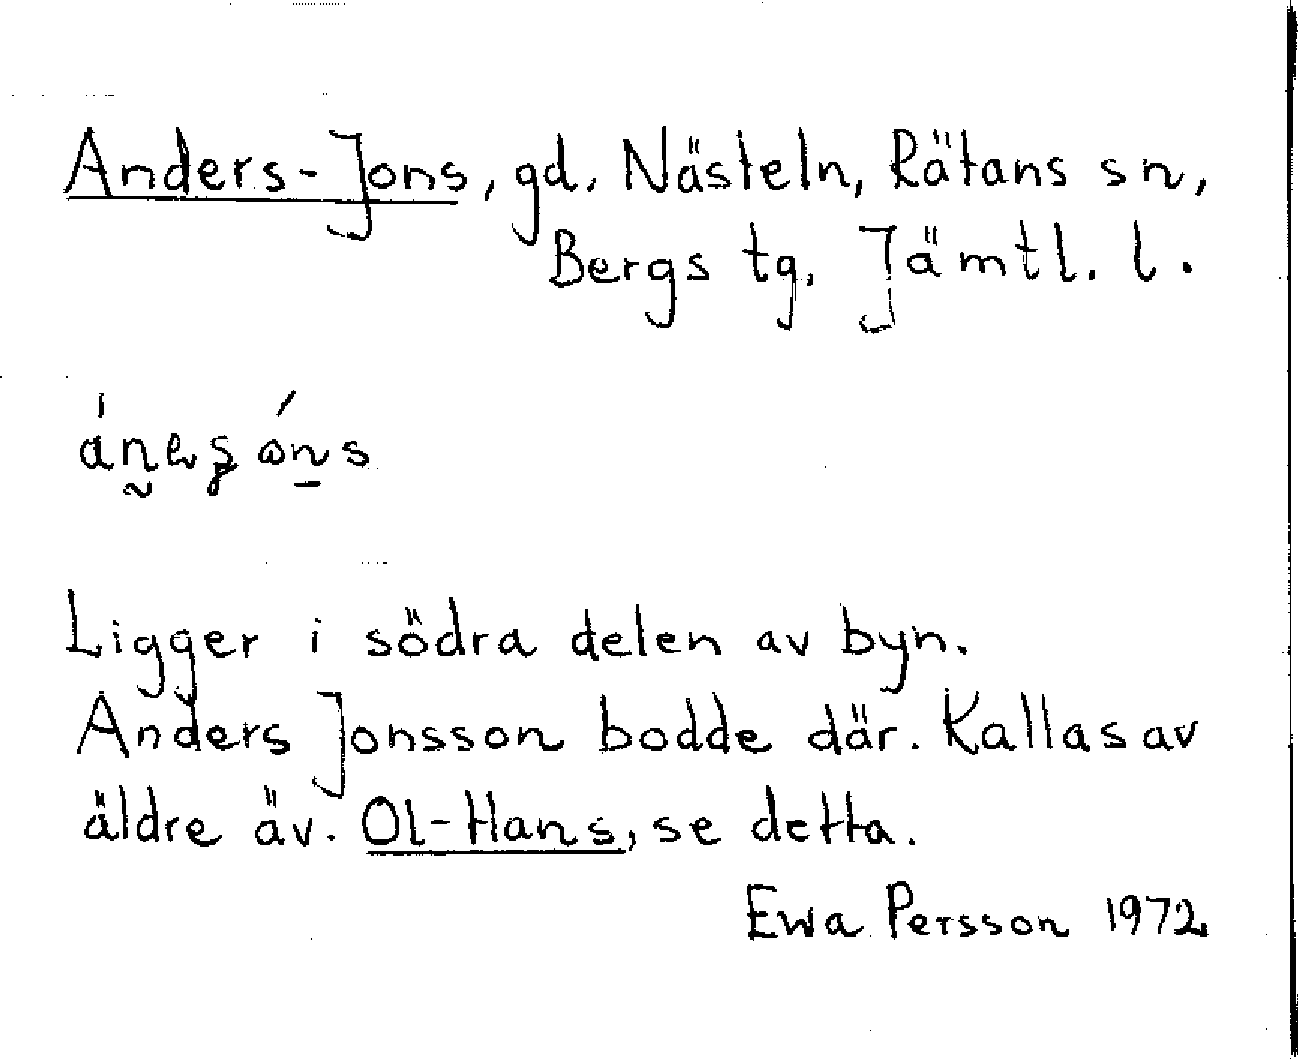 Anders-Jons, gd, Nästeln, Rätans sn,
Bergs tg, Jämtl. l.
Ligger i södra delen av byn.
Anders Jonsson bodde där. Kallas av
äldre äv. Ol-Hans, se detta.
Ewa Persson 1972